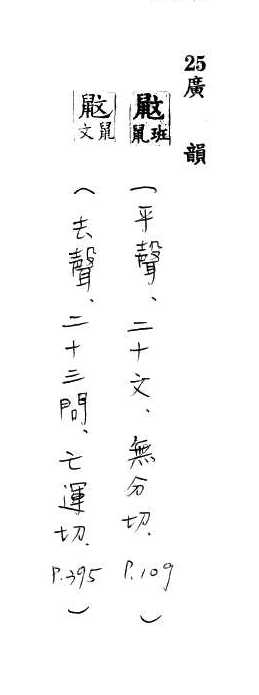 25廣韻
鼤 班鼠
（平聲、二十文、無分切. P.109）
鼤 鼠文
（去聲、二十三問、亡運切. P.395）